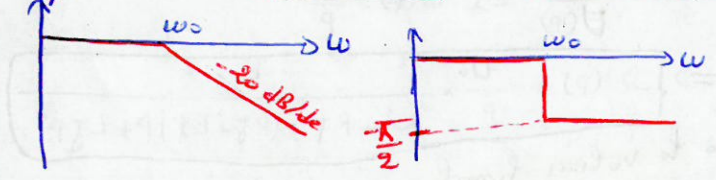 ω₀
ω
-20 dB/dec
ω₀
ω
-π/2